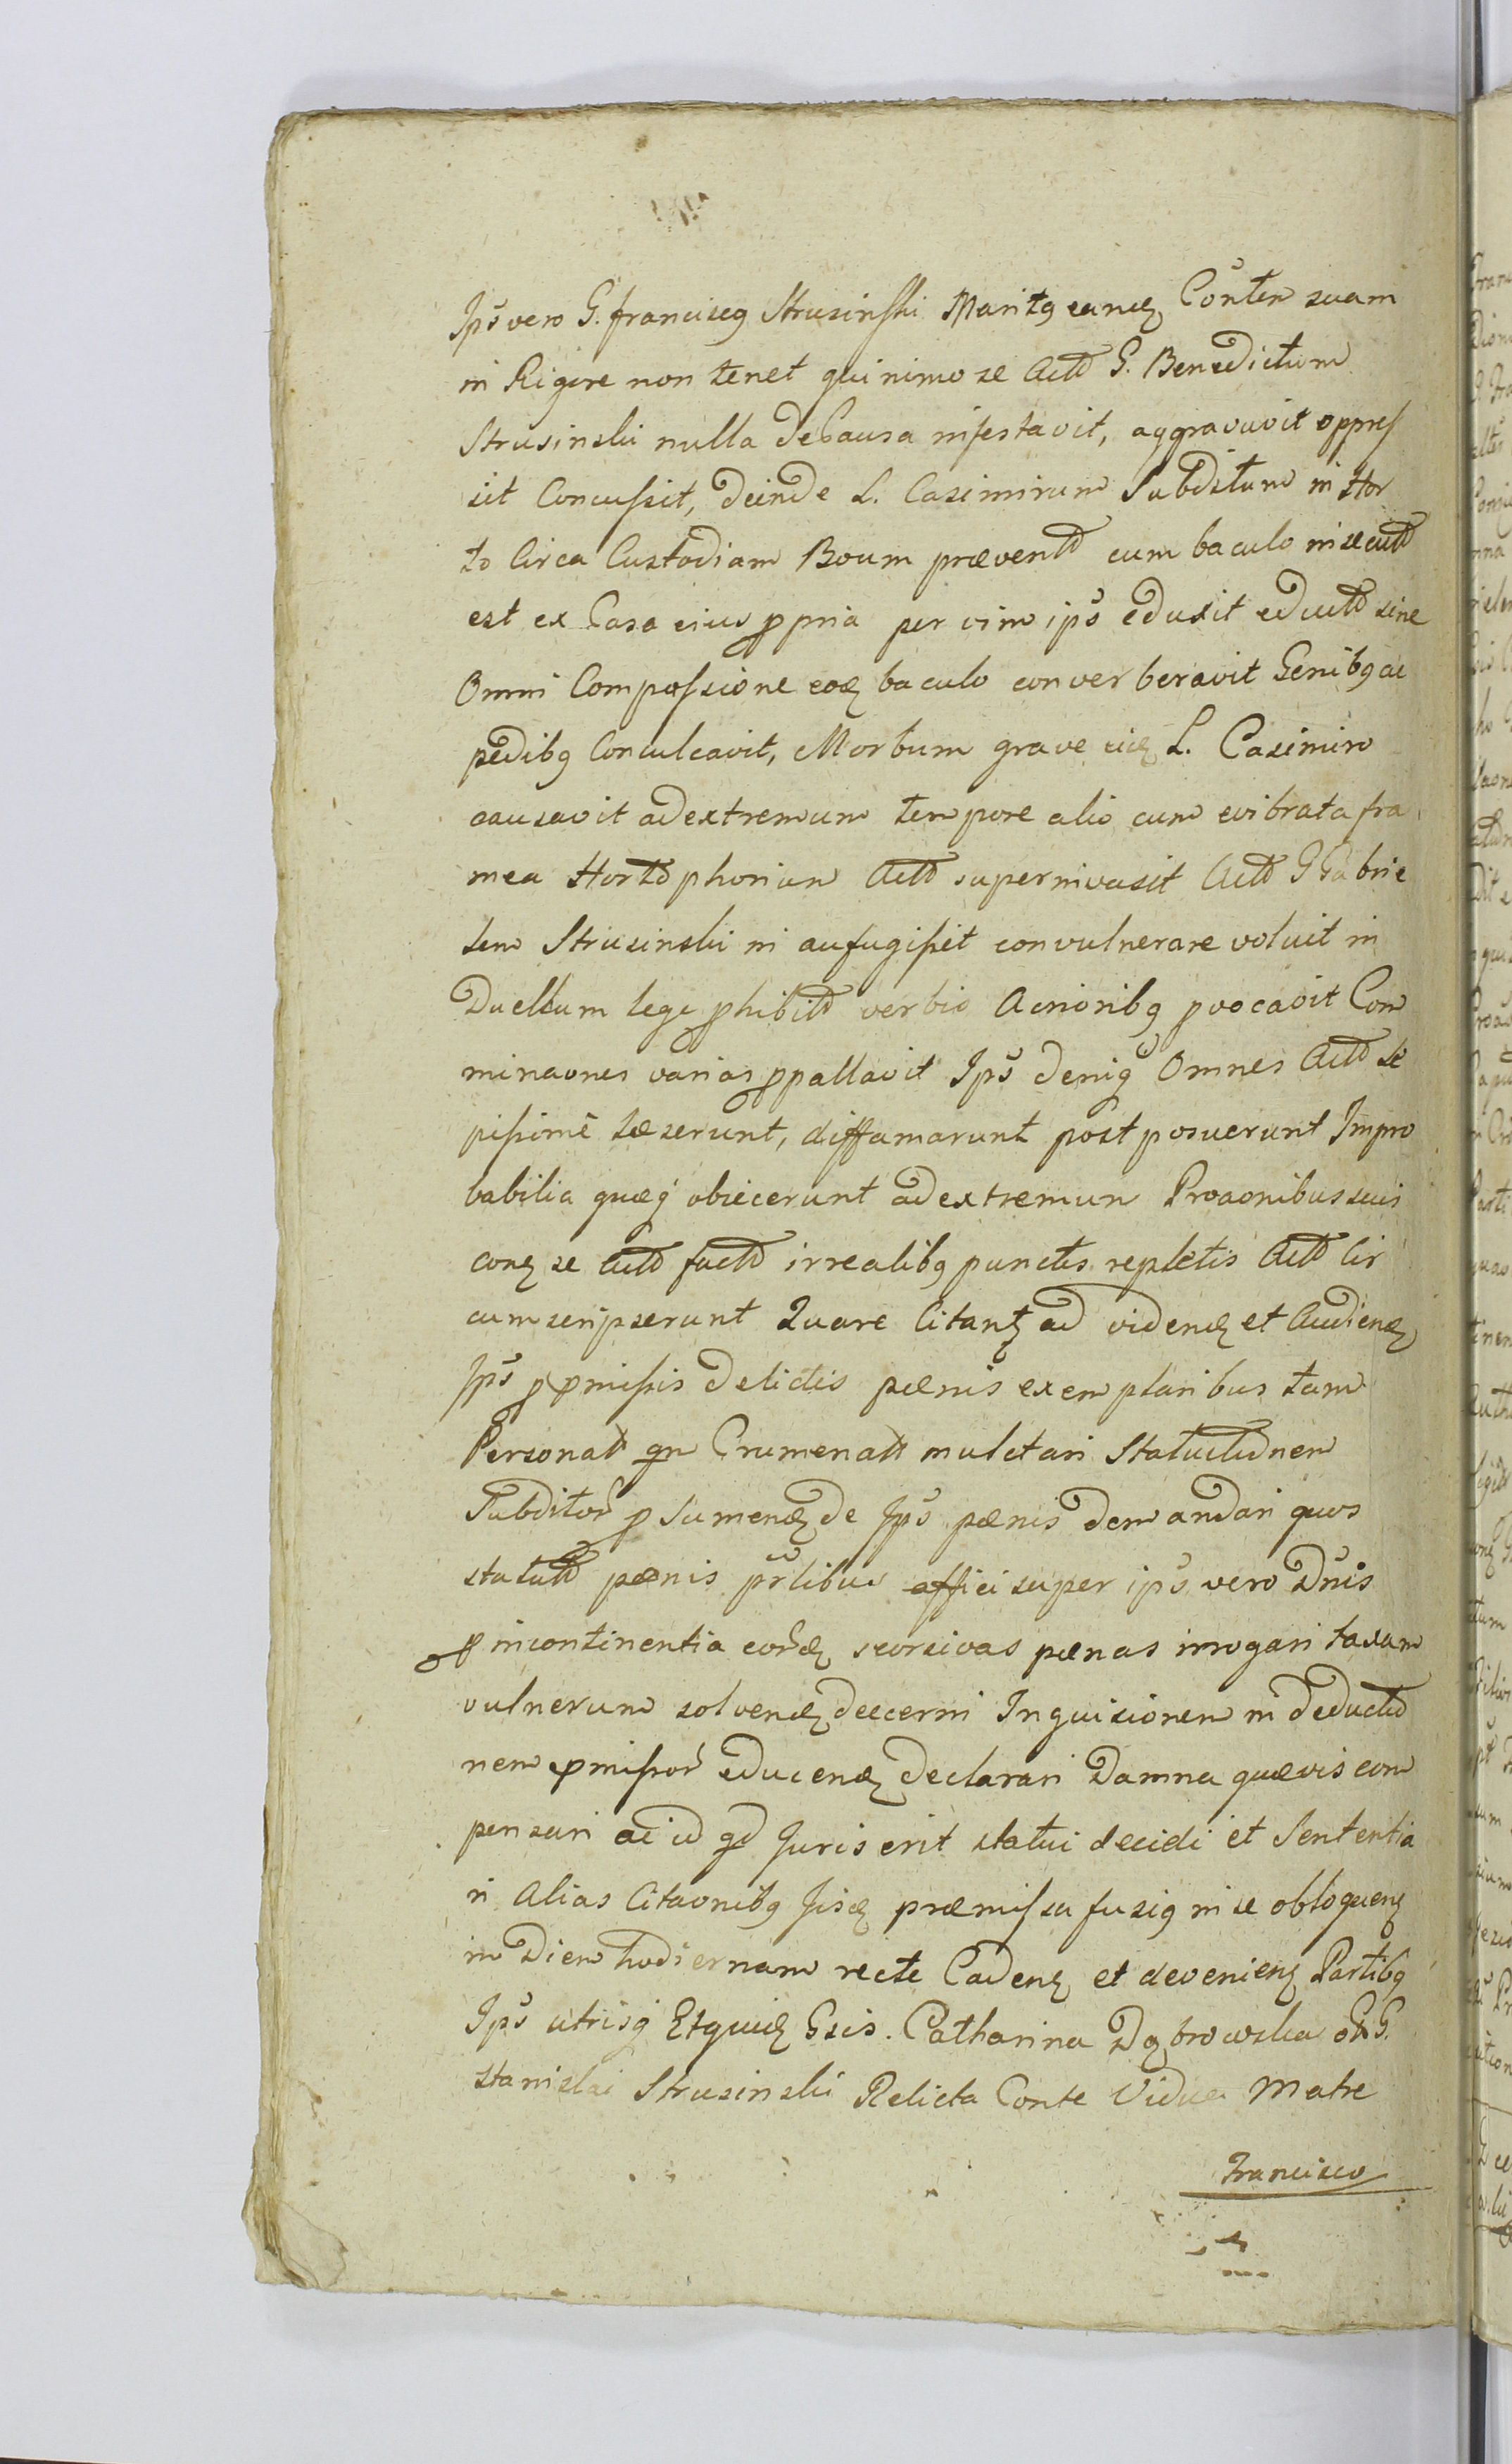 Ips vero G. Franciscq Strusinski Maritq eandꝫ Contem suam
in Rigore non tenet quinimo se Act G. Benedictum
Strusinski nulla de Causa infestavit, aggravavit oppres
sit Concussit, deinde L. Casimirum Subditum in Hor
to Circa Custodiam Boum prævent cum baculo insecut
est ex Casa eius ppria per vim ips eduxit educt sine
Omni Compassione eodꝫ baculo converberavit Genibq ac
pedibq Conculcavit, Morbum grave eidꝫ L. Casimiro
causavit ad extremum tempore alio cum evibrata fra
mea Hort phorium Act superinvasit Act G Gabrie
lem Strusinski ni aufugisset convulnerare voluit in
Duellum lege phibit verbis Acrioribq pvocavit Com
minaones varias ppallavit Ips deniq Omnes Act se
pissime læserunt, diffamarunt post posuerunt Impro
babilia quæq obiecerunt ad extremum Proaonibus suis
cone se Act fact irrealibq punctis repletis Act Cir
cumscripserunt Quare Citantꝫ ad videndꝫ et Audiendꝫ
Ips p pmissis delictis pænis exemplaribus tam
Personat qm Crumenat mulctari Statuitionem
Subditor p sumendꝫ de Ips pænis demandari quos
statut pænis prlibus affici super ips vero Dnis
p incontinentia eordꝫ seorsivas pænas irrogari taxam
vulnerum solvendꝫ decerni Inquisionem in deductio
nem pmissor educendꝫ declarari Damna quævis com
pensari ac id qd Juris erit statui decidi et Sententia
ri Alias Citaonibq hisdꝫ præmissa fusiq in se obloquenꝫ
in Diem hodiernam recte Cadenꝫ et devenienꝫ Partibq
Ips utrisq Et quidꝫ Gsis. Catharina Dąbrowska G.
Stanislai Strusinski Relicta Conte Vidua Matre
Francisco